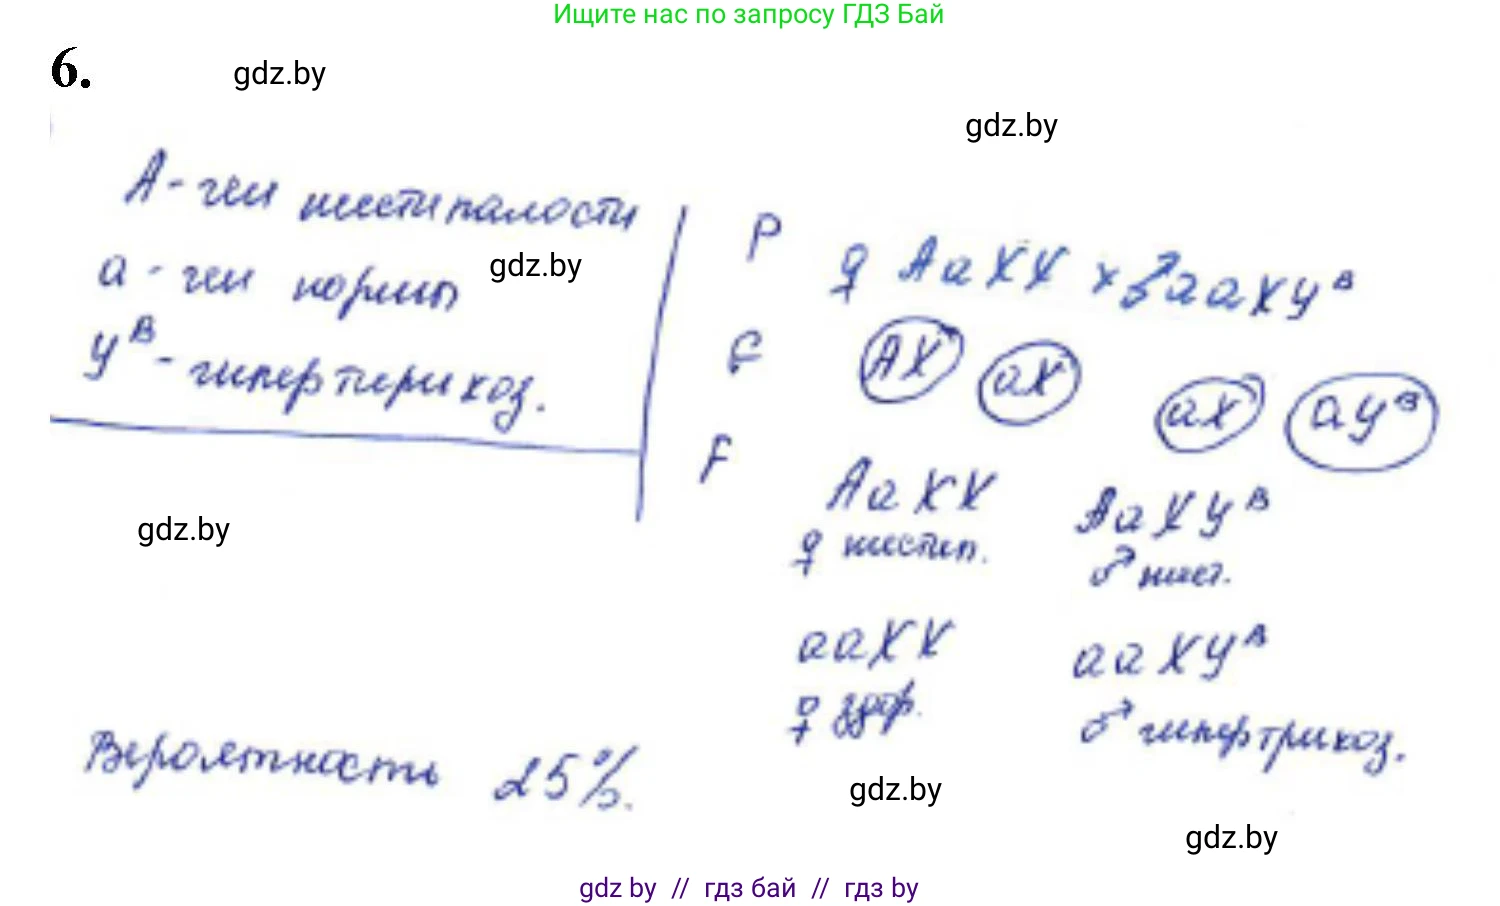 Ищите нас по запросу ГДЗ Бай
6.
gdz.by
gdz.by
A - ген шестипалости
a - ген нормы
gdz.by
yᴮ - гипертрихоз.
P ♀ AaXX × ♂ aaXyᴮ
G AX aX aX ayᴮ
F AaXX AaXyᴮ
♀ шестип. ♂ шест.
gdz.by
aaXX aaXyᴮ
♀ здор. ♂ гипертрихоз.
Вероятность 25%.
gdz.by
gdz.by
gdz by // гдз бай // гдз by